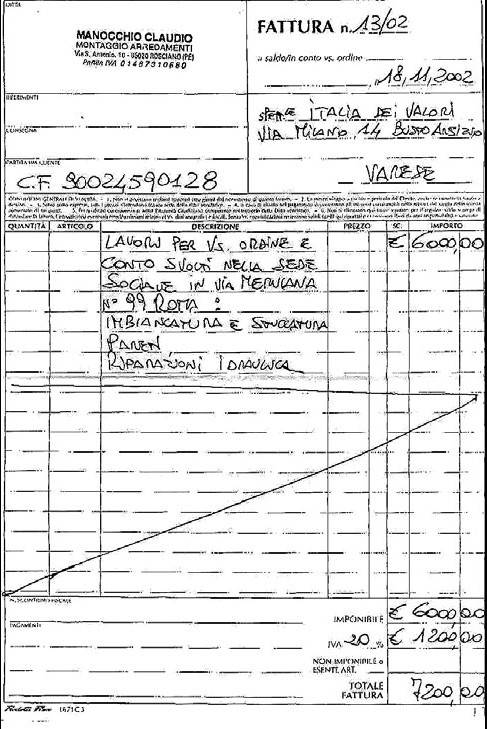 DITTA
MANOCCHIO CLAUDIO
MONTAGGIO ARREDAMENTI
Via S. Antonio, 10 - 65020 ROSCIANO (PE)
PARTITA IVA 01487310680
FATTURA n. 13/02
a saldo/in conto vs. ordine
, 18,11,2002
RIFERIMENTI
CONSEGNA
SPETT. ITALIA DEI VALORI
VIA MILANO 14 BUSTO ARSIZIO
VARESE
PARTITA IVA CLIENTE
C.F. 90024590128
QUANTITÀ ARTICOLO DESCRIZIONE PREZZO SC. IMPORTO
LAVORI PER VS. ORDINE E € 6000,00
CONTO SVOLTI NELLA SEDE
SOCIALE IN VIA MERULANA
N° 99 ROMA :
IMBIANCATURA E STUCCATURA
PARETI,
RIPARAZIONI IDRAULICA
PAGAMENTI
IMPONIBILE € 6000,00
IVA 20 % € 1200,00
NON IMPONIBILE o
ESENTE ART.
TOTALE
FATTURA 7200,00
1671C3